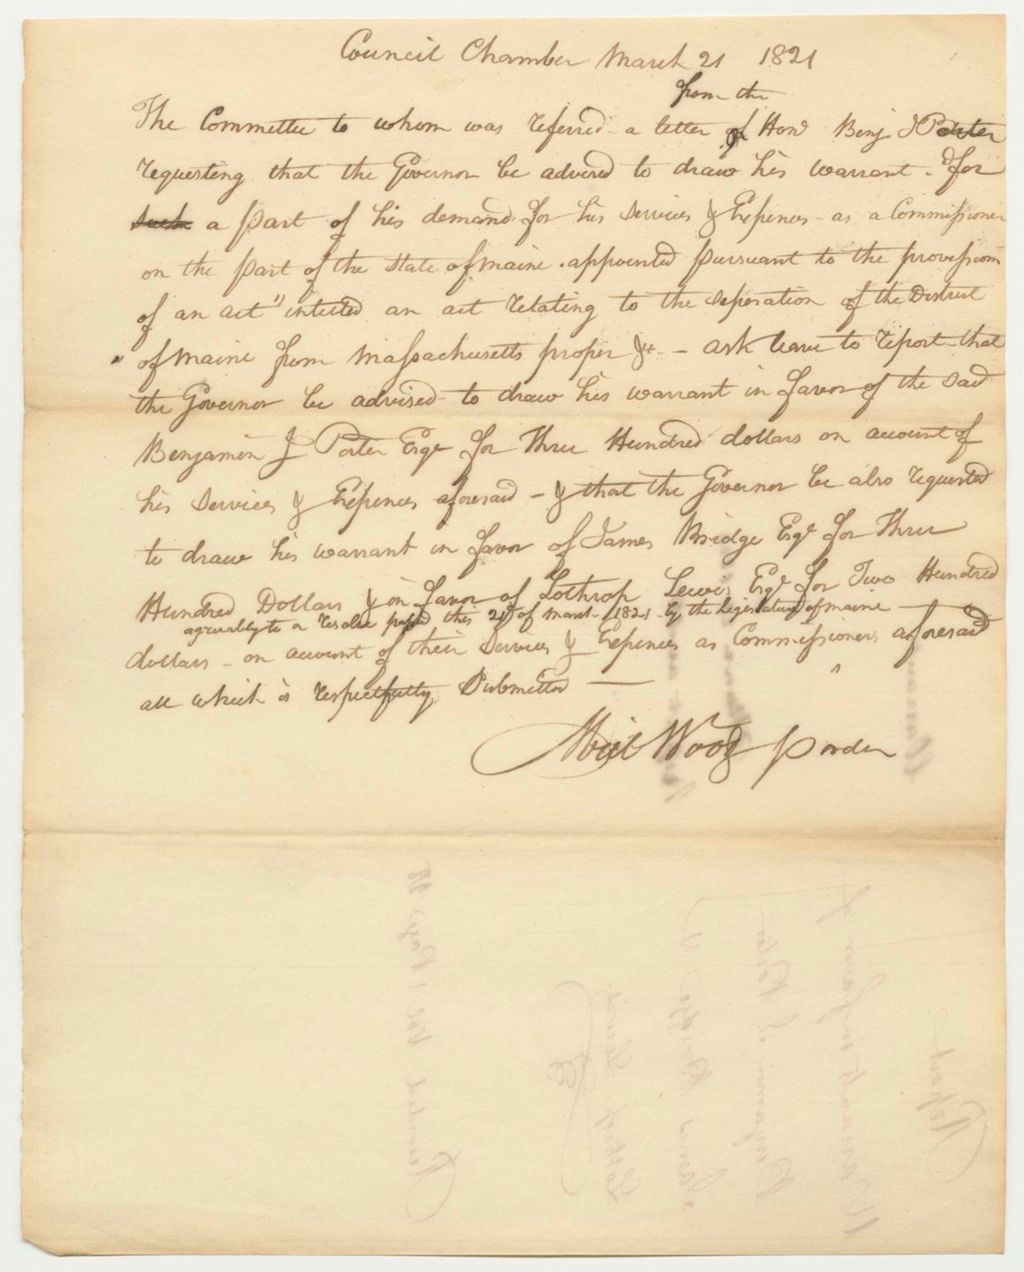 Council Chamber March 21 1821
from the
The Committee to whom was referred a letter of Hon Benj J Porter
requesting that the Governor be advised to draw his warrant for
such a part of his demand for his services & Expences as a Commissioner
on the part of the State of Maine appointed pursuant to the provission
of an act "intitled an act relating to the seperation of the District
" of Maine from Massachusetts proper &c - ask leave to report that
the Governor be advised to draw his warrant in favor of the said
Benjamin J Porter Esqr for Three Hundred dollars on account of
his services & Expences aforesaid - & that the Governor be also requested
to draw his warrant in favor of James Bridge Esqr for Three
Hundred Dollars & in favor of Lothrop Lewis Esqr for Two Hundred
agreeably to a resolve passed this 21st of March 1821 by the legislature of Maine
dollars - on account of their services & Expences as Commissioners aforesaid
all which is respectfully Submitted
Abiel Wood p order
Report
Warrants in favor of
Benjamin J. Porter
James Bridge
Lothrop Lewis
Recorded Vol 1 Page